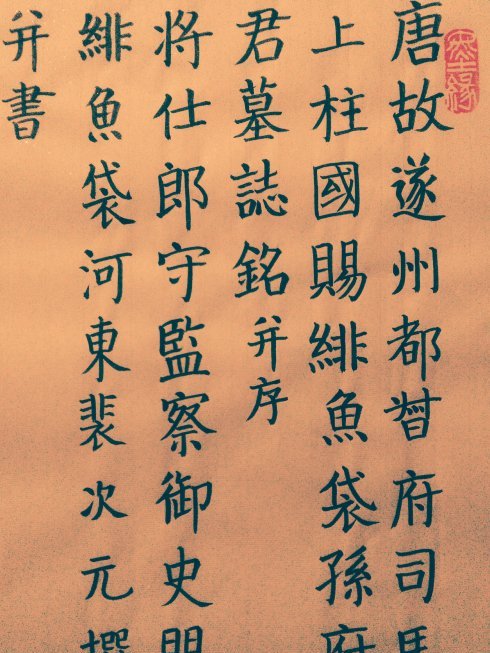 唐故遂州都督府司馬
上柱國賜緋魚袋孫府
君墓誌銘并序
将仕郎守監察御史
緋魚袋河東裴次元撰
并書